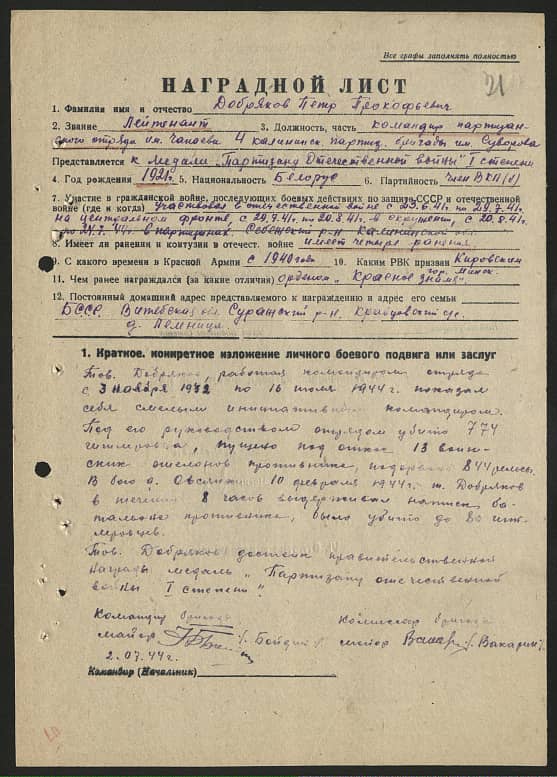 Все графы заполнять полностью
21
НАГРАДНОЙ ЛИСТ
1. Фамилия имя и отчество Добряков Петр Прокофьевич
2. Звание Лейтенант 3. Должность, часть командир партизан-
ского отряда им. Чапаева 4 калининск. партиз. бригады им. Суворова
Представляется к медали "Партизану Отечественной войны" I степени
4. Год рождения 1921г. 5. Национальность Белорус 6. Партийность член ВКП(б)
7. Участие в гражданской войне, последующих боевых действиях по защите СССР и отечественной
войне (где и когда) участвовал в отечественной войне с 23.6.41г. по 29.7.41г.
на центральном фронте, с 29.7.41г. по 20.8.41г. в окружен., с 20.8.41г.
по 24.7.44г. в партизанах. Себежский р-н Калининской обл.
8. Имеет ли ранения и контузии в отечест. войне имеет четыре ранения
9. С какого времени в Красной Армии с 1940 года 10. Каким РВК призван Кировским
гор. Минск.
11. Чем ранее награждался (за какие отличия) орденом "Красное знамя"
12. Постоянный домашний адрес представляемого к награждению и адрес его семьи
БССР Витебская обл. Суражский р-н. с/с.
д.
1. Краткое, конкретное изложение личного боевого подвига или заслуг
Тов. Добряков, работая командиром отряда
с 3 ноября 1942 по 16 июля 1944г. показал
себя смелым инициативным командиром.
Под его руководством отрядом убито 774
гитлеровца, пущено под откос 13 воин-
ских эшелонов противника, подорвано 844 рельсы.
В бою д. 10 февраля 1944г. т. Добряков
в течении 8 часов выдерживал натиск ба-
тальона противника, было убито до 80 гитл-
еровцев.
Тов. Добряков достоин правительственной
награды медаль "Партизану отечественной
войны I степени"
Командир бригады комиссар бригады
майор майор /Вакарин/
2.07.44г.
Командир (Начальник)